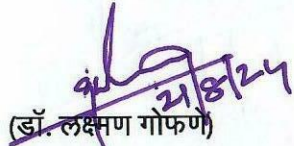 21/8/24
(डॉ. लक्ष्मण गोफणे)